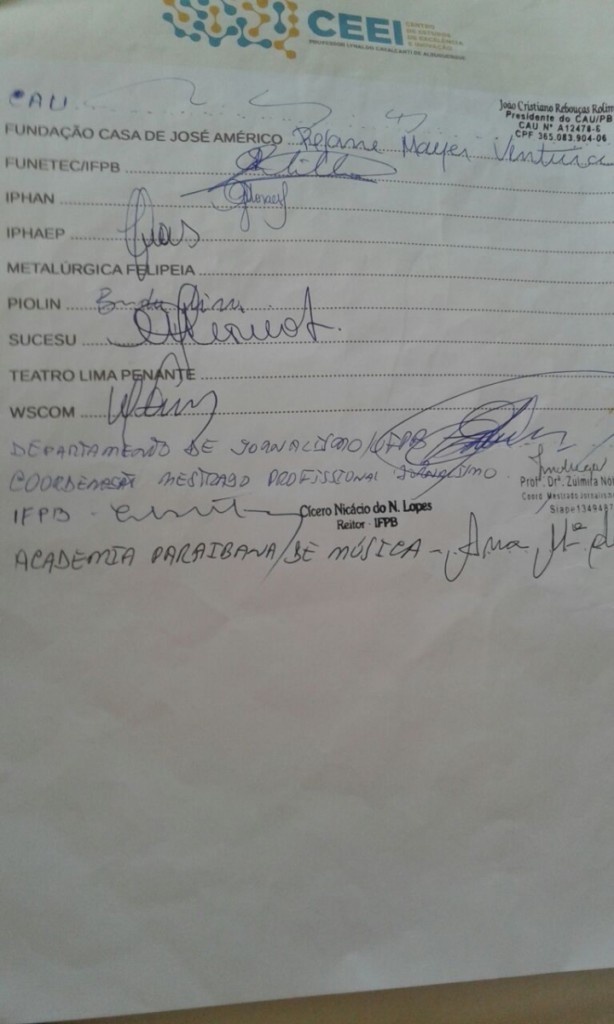 CEEI CENTRO DE ESTUDOS DE EXCELÊNCIA E INOVAÇÃO
PROFESSOR LYNALDO CAVALCANTI DE ALBUQUERQUE
CAU
João Cristiano Rebouças Rolim
Presidente do CAU/PB
CAU Nº A12478-6
CPF 365.083.904-06
FUNDAÇÃO CASA DE JOSÉ AMÉRICO Rejane Mayer Ventura
FUNETEC/IFPB
IPHAN
IPHAEP
METALÚRGICA FELIPEIA
PIOLIN
SUCESU
TEATRO LIMA PENANTE
WSCOM
DEPARTAMENTO DE JORNALISMO/UFPB
COORDENAÇÃO MESTRADO PROFISSIONAL JORNALISMO
Profª. Drª. Zulmira Nó
Coord. Mestrado Jornalis
Siape 134948
IFPB - Cícero Nicácio do N. Lopes
Reitor - IFPB
ACADEMIA PARAIBANA DE MÚSICA - Ana Mª d